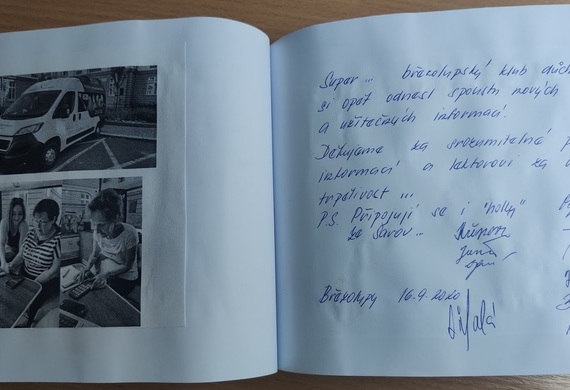 Super... břacolupský klub důch
si opět odnesl spoustu nových
a užitečných informací.
Děkujeme za srozumitelné p
informací a lektorovi za
trpělivost ...
P.S. Připojují se i "holky"
ze
Jana
Břvkolupy 16.9.2020
Malá